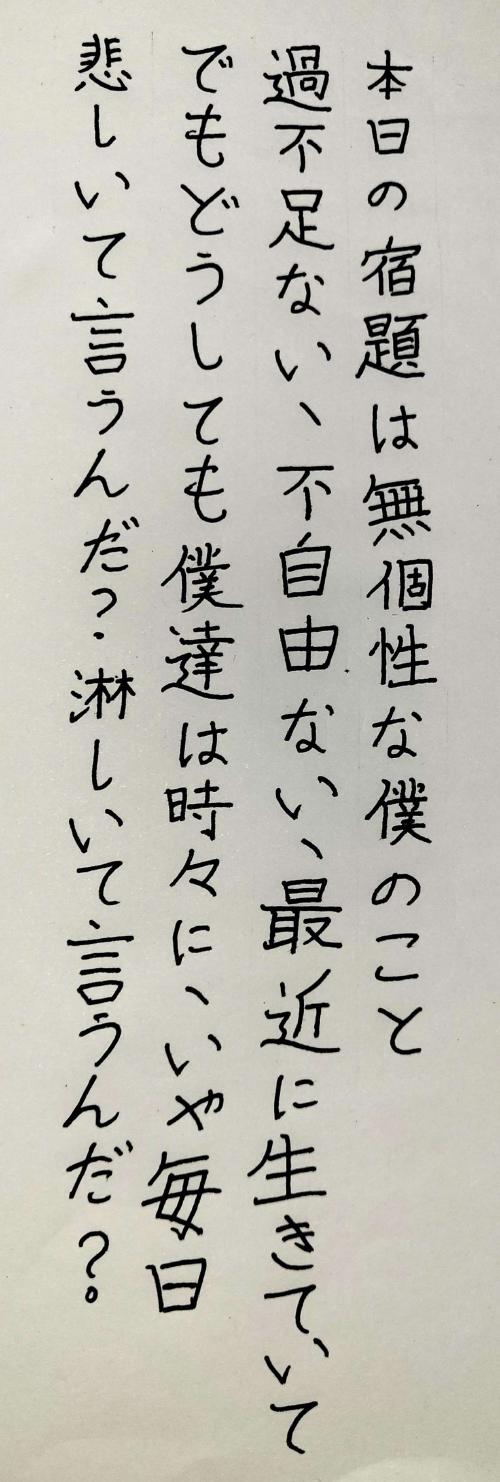 本日の宿題は無個性な僕のこと
過不足ない、不自由ない、最近に生きていて
でもどうしても僕達は時々に、いや毎日
悲しいて言うんだ?淋しいて言うんだ?